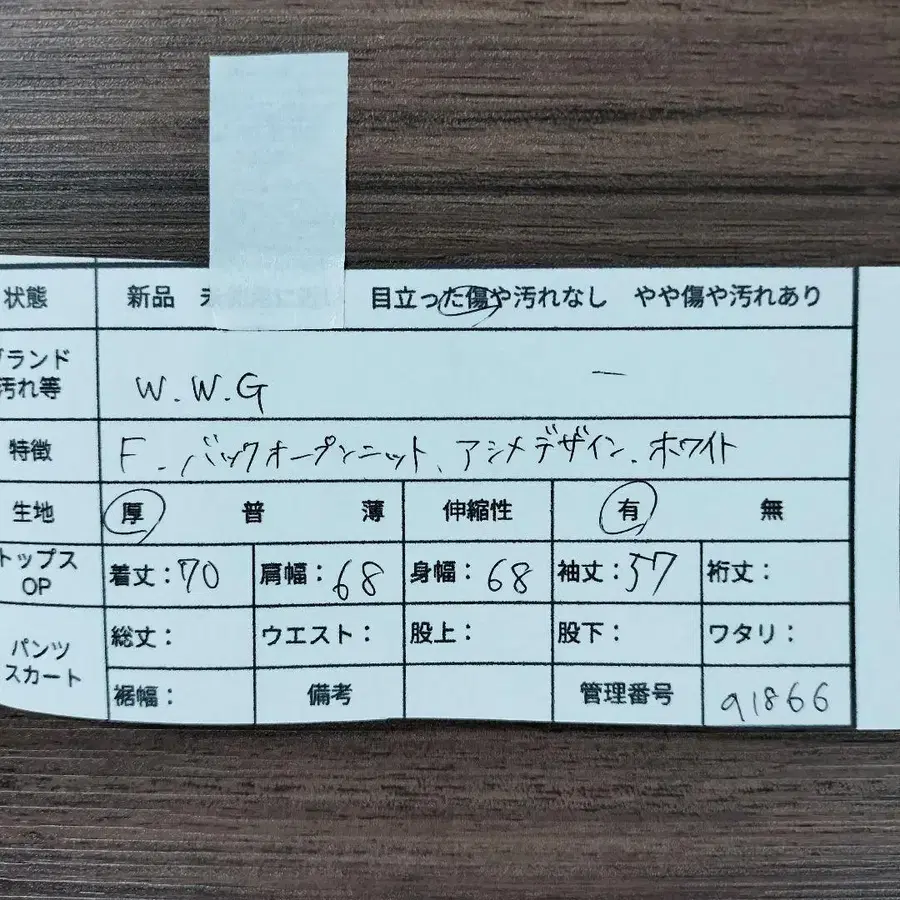 状態 新品 目立った傷や汚れなし やや傷や汚れあり
ランド
汚れ等 W.W.G ー
特徴 F.バックオープンニット、アシメデザイン.ホワイト
生地 厚 普 薄 伸縮性 有 無
トップス
OP 着丈:70 肩幅:68 身幅:68 袖丈:57 裄丈:
パンツ
スカート 総丈: ウエスト: 股上: 股下: ワタリ:
裾幅: 備考 管理番号 91866